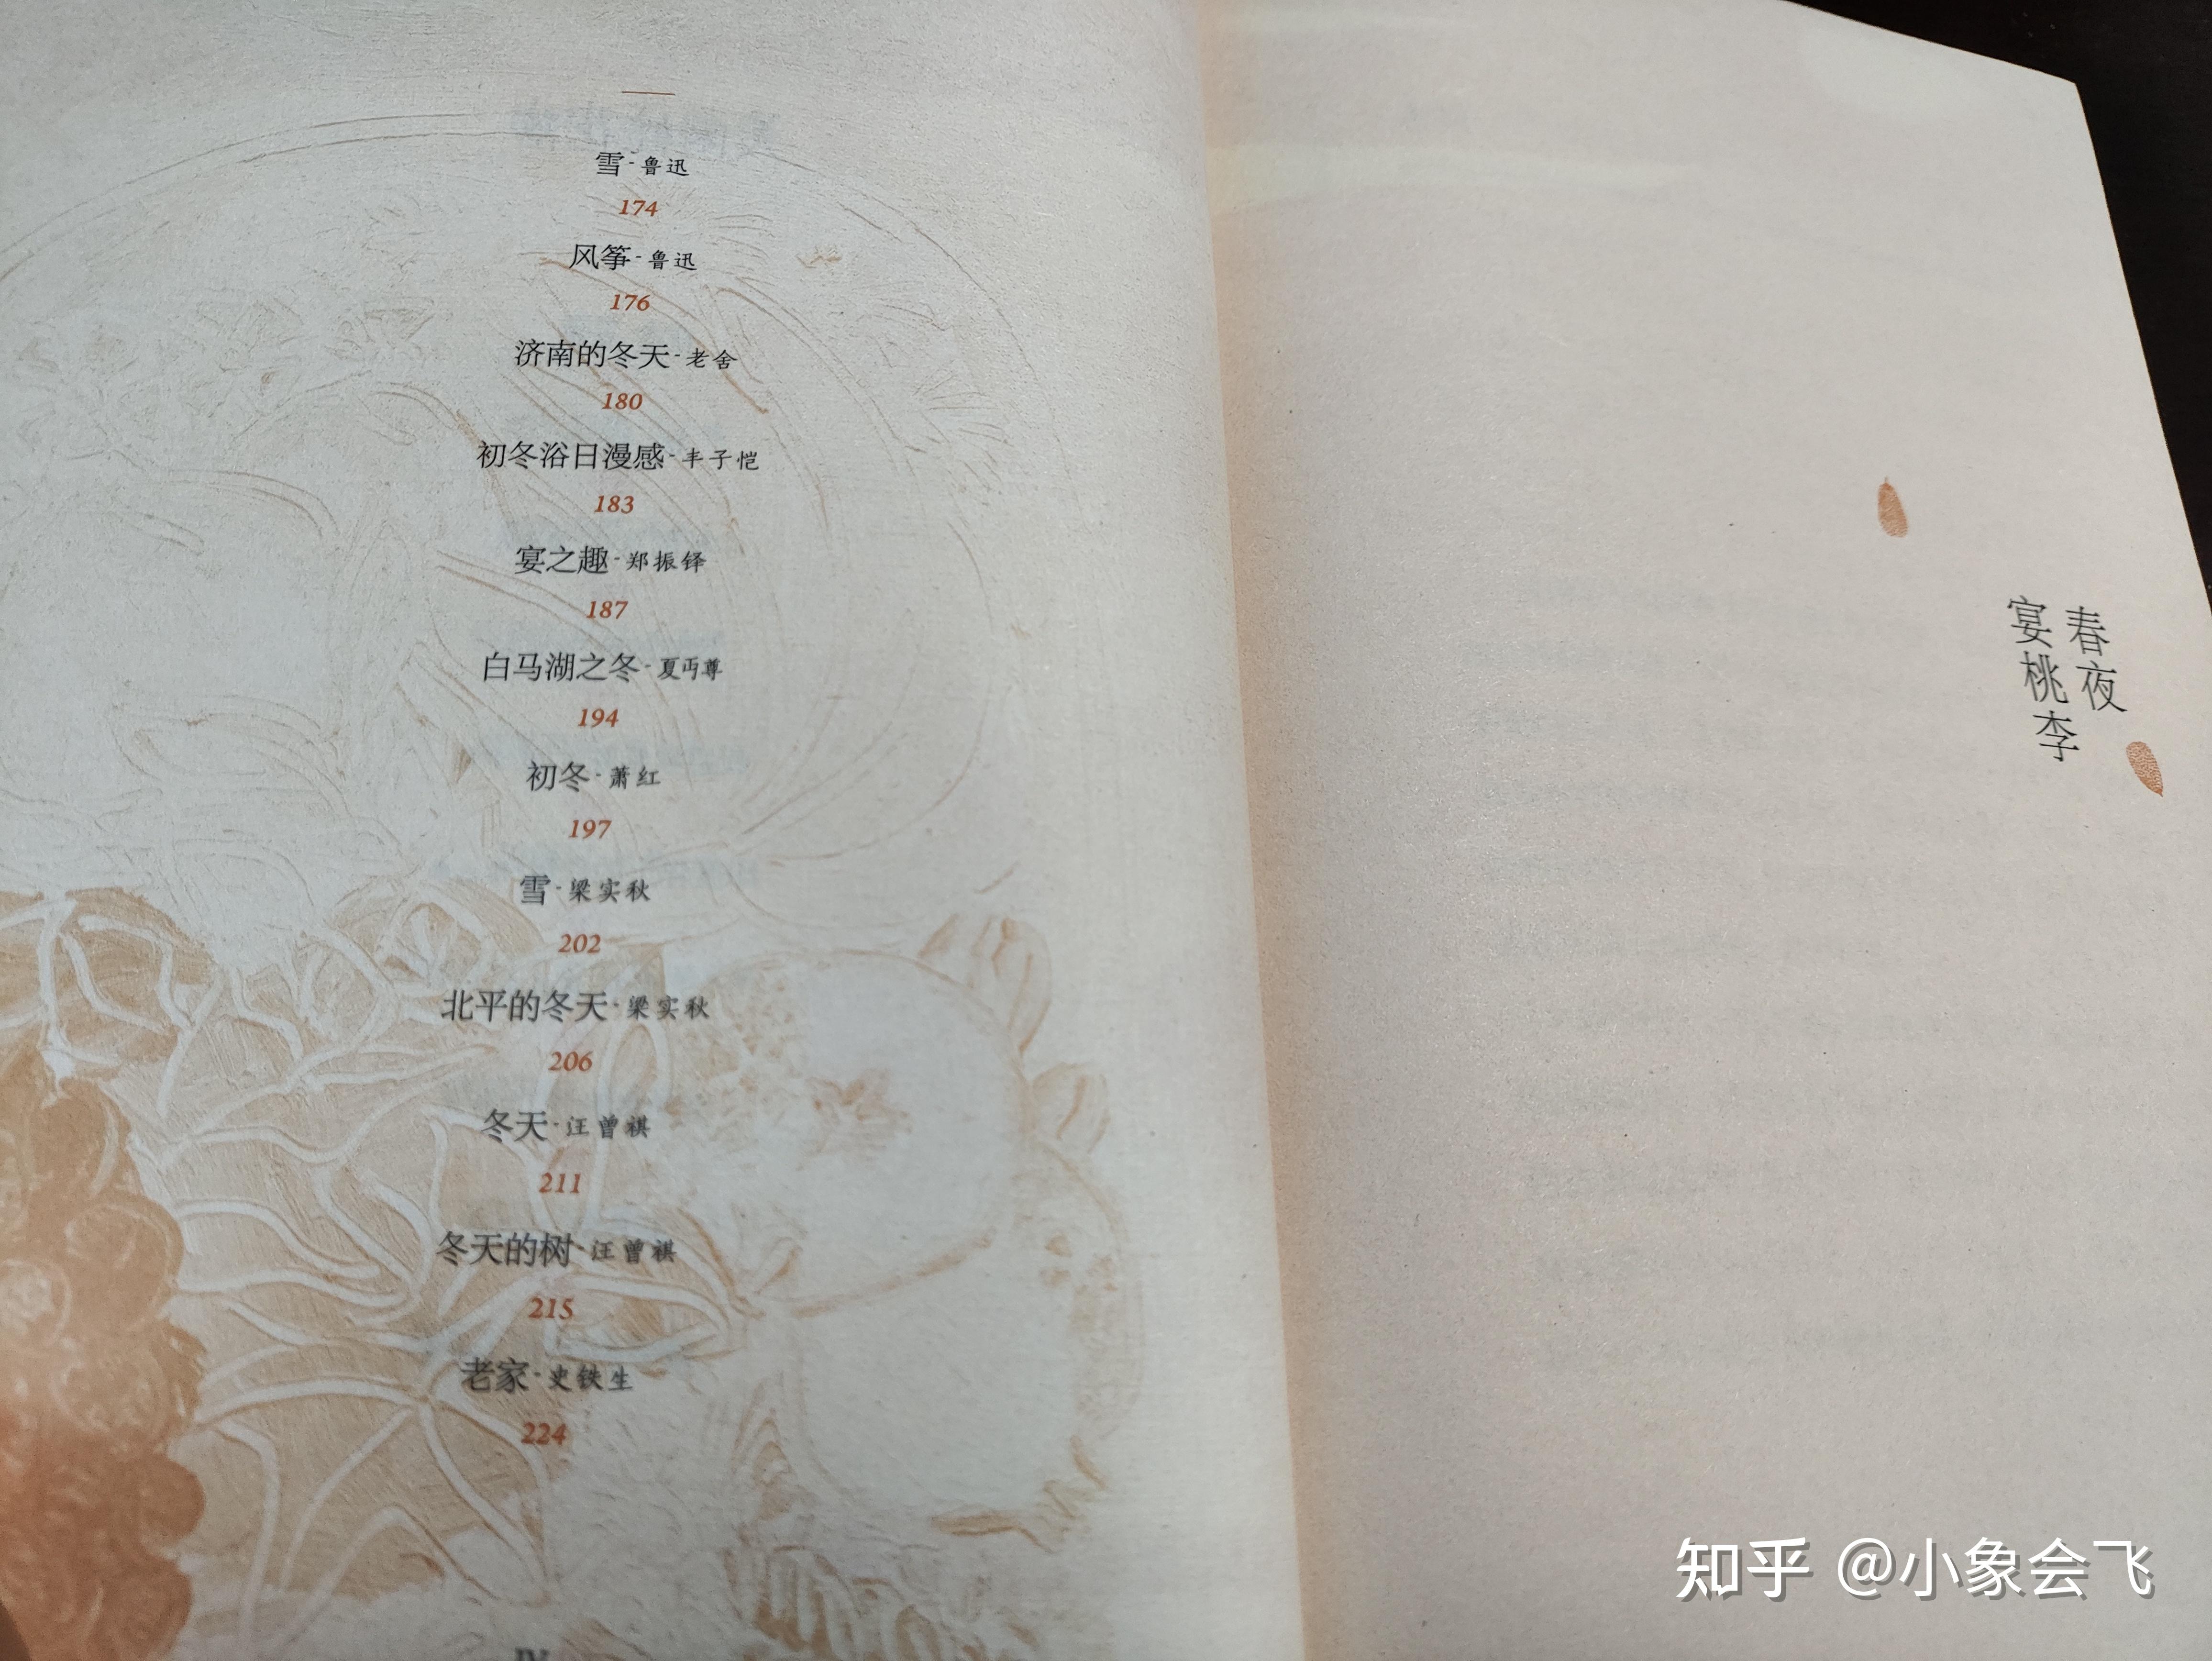 雪-鲁迅
174
风筝-鲁迅
176
济南的冬天-老舍
180
初冬浴日漫感-丰子恺
183
宴之趣-郑振铎
187
白马湖之冬-夏丏尊
194
初冬-萧红
197
雪-梁实秋
202
北平的冬天-梁实秋
206
冬天-汪曾祺
211
冬天的树-汪曾祺
215
老家-史铁生
224
春夜
宴桃李
知乎 @小象会飞